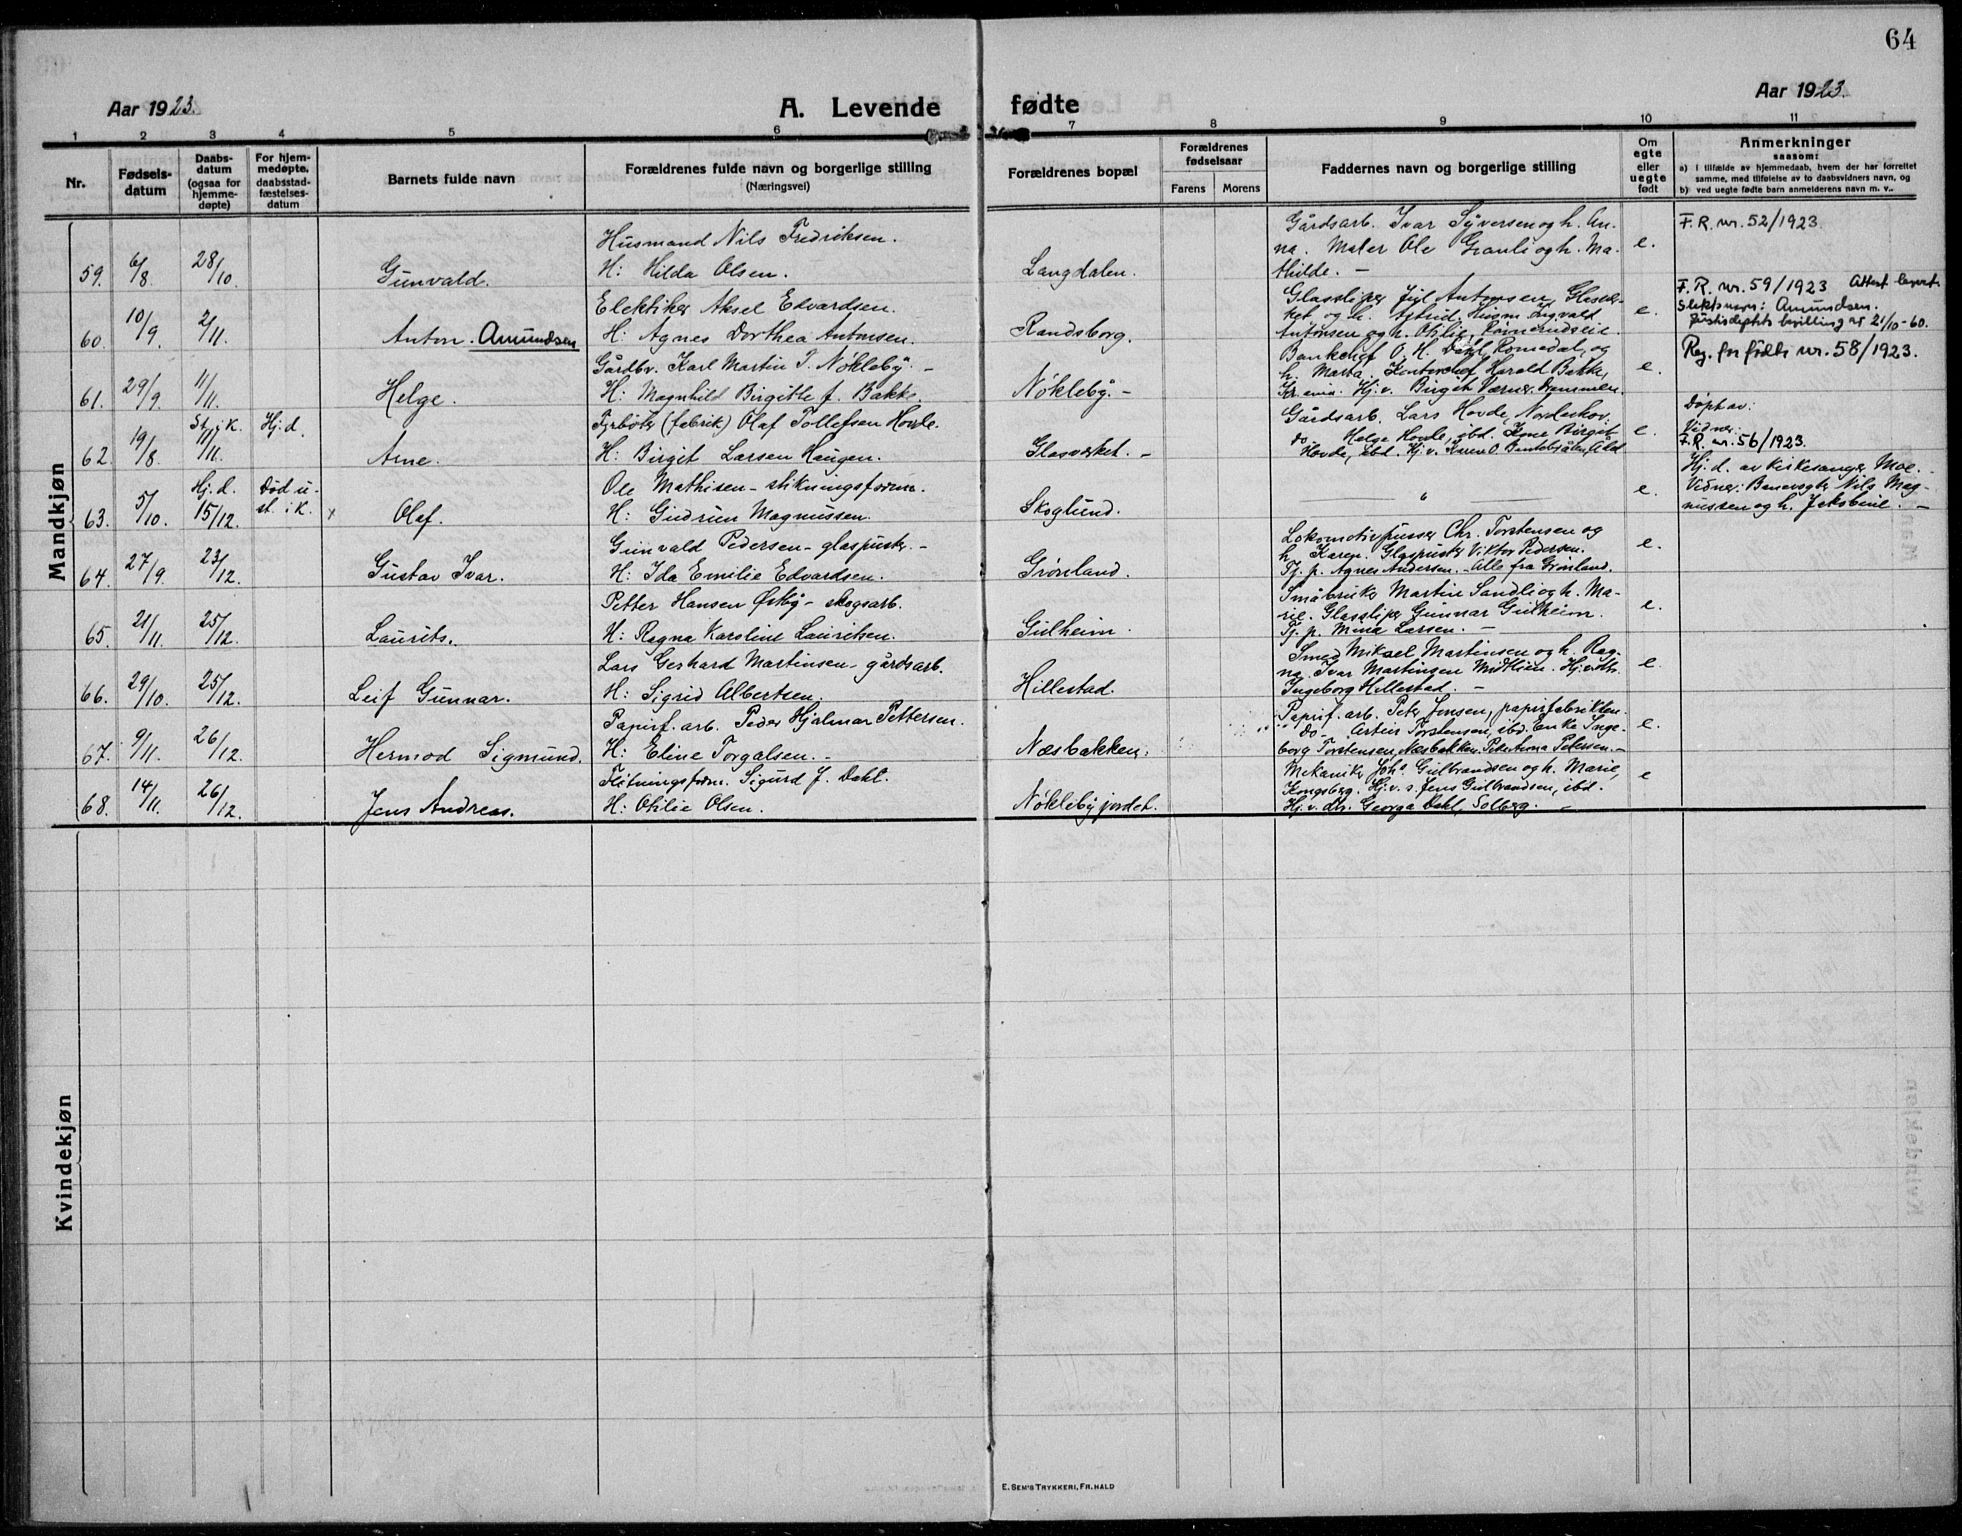 64
Aar 1923.
A. Levende fødte
Aar 1923.
1 2 3 4 5 6 7 8 9 10 11
Nr.
Fødsels-
datum
Daabs-
datum
(ogsaa for
hjemme-
døpte)
For hjem-
medøpte,
daabsstad-
fæstelses-
datum
Barnets fulde navn
Forældrenes fulde navn og borgerlige stilling
(Næringsvei)
Forældrenes bopæl
Forældrenes
fødselsaar
Farens
Morens
Faddernes navn og borgerlige stilling
Om
egte
eller
uegte
født
Anmerkninger
saasom:
a) i tilfælde av hjemmedaab, hvem der har forrettet
samme, med tilføielse av to daabsvidners navn, og
b) ved uegte fødte barn anmelderens navn m. v..
Mandkjøn
59. 6/8 28/10 Gunvald.
Husmand Nils Fredriksen.
H: Hilda Olsen.
Langdalen.
Gårdsarb. Ivar Syversen og h. An-
na. Maler Ole Granli og h. Ma-
thilde. —
e.
F.R. nr. 52/1923.
60. 10/9. 2/11. Anton. Amundsen
Elektiker Aksel Edvardsen.
H: Agnes Dorthea Antonsen.
Randsborg.
Glassliper Antonsen, Glasver-
ket og h. Astrid. Husm. Ingvald
Antonsen og h. Otilie,
e.
F.R. nr. 59/1923 Attest levert.
Slektsnavn: Amundsen.
Justisdeptets bevilling av 21/10-60.
61. 29/9. 11/11. Helge.
Gårdbr. Karl Martin P. Nøkleby. —
H: Magnhild Birgitte f. Bakke.
Nøkleby. —
Bankchef O. H. Dahl, Romedal, og
h. Marta. Kontorchef Harald Bakke,
Kr.ania. Hj.v. Birgit Værner, Drammen.
e.
Reg. for fødte nr. 58/1923.
62. 19/8. St. i k. 11/11. Hj. d. Arne.
Fyrbøter (fabrik) Olaf Tollefsen Hovde.
H: Birgit Larsen Haugen.
Glasverket. —
Gårdsarb. Lars Hovde, Norderhov.
do. Helge Hovde, ibd. Birgit
Hovde, ibd. Hj. v. Karen O.
e.
Døpt av:
Vidner:
F.R. nr. 56/1923.
63. 5/10. Hj. d. 15/12. Død u-
st. i k. x Olaf.
Ole Mathisen — stikningsformn.
H: Gudrun Magnussen.
Skoglund.
— " —
e.
Hj. d. av kirkesanger Moe. —
Vidner: Banevogter Nils Mag-
nussen og h. Jakobine. —
64. 27/9. 23/12. Gustav Ivar.
Gunvald Pedersen — glaspuster. —
H: Ida Emilie Edvardsen.
Grønland.
Lokomotivpusser Chr. Torstensen og
h. Karen. Glaspuster Viktor Pedersen.
Pj. p. Agnes Andersen. — Alle fra Grønland.
e.
65. 21/11. 25/12. Laurits.
Petter Hansen Østby — skogsarb.
H: Ragna Karoline Lauritsen.
Gulheim.
Småbruker Martin Sandli og h. Ma-
rie. Glassliper Gunnar Gulheim.
Pj. p. Mina Larsen. —
e.
66. 29/10. 25/12. Leif Gunnar.
Lars Gerhard Martinsen — gårdsarb.
H: Sigrid Albertsen.
Hillestad.
Smed Mikael Martinsen og h. Rag-
na. Ivar Martinsen Midtlien.
Ingeborg Hillestad. —
e.
67. 9/11. 26/12. Hermod Sigmund.
Papirf. arb. Peder Hjalmar Pettersen.
H: Eline Torgalsen. —
Næsbakken.
Papirf. arb. Peter Jensen, papirfabrikken.
do. Torstensen, ibd. Enke Inge-
borg Torstensen, Næsbakken. Pike Anna Petersen. —
e.
68. 14/11. 26/12. Jens Andreas.
Fløtningsformn. Sigurd J. Dahl.
H: Otilie Olsen.
Nøklebyjordet.
Mekaniker Johs. Gulbrandsen og h. Marie,
Kongsberg. Hj. v. s. Jens Gulbrandsen, ibd.
Hj. v. dtr. Georga Dahl, Solberg. —
e
Kvindekjøn
E. SEM'S TRYKKERI, FR.HALD